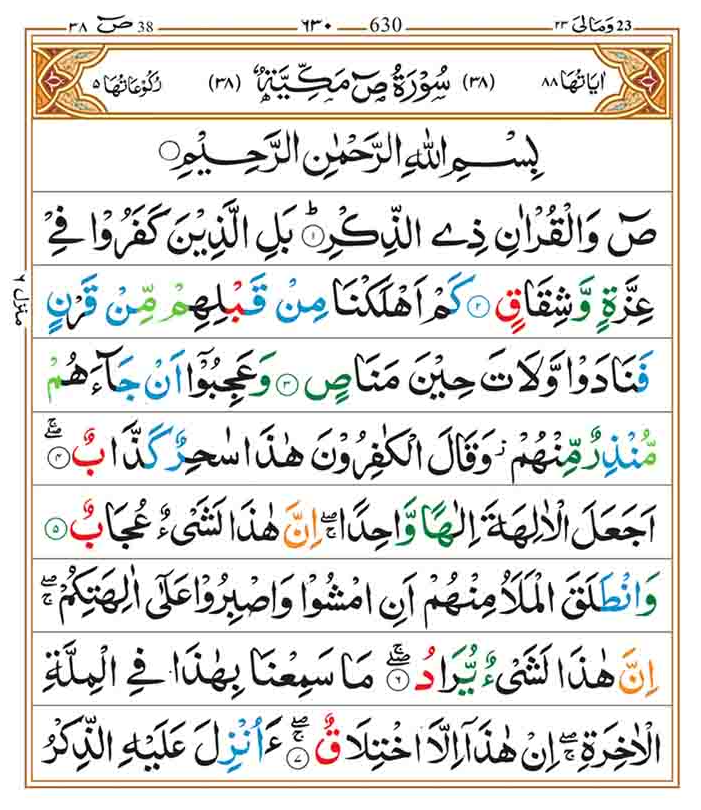 ص ٓ 38 ٣٨ ٦٣٠ 630 وَمَالِیَ 23 ٢٣
اٰیَاتُهَا ٨٨ (٣٨) سُوْرَةُ صٓ مَكِّیَّةٌ (٣٨) رُكُوْعَاتُهَا ٥
بِسْمِ اللّٰهِ الرَّحْمٰنِ الرَّحِیْمِ۝
صٓ وَالْقُرْاٰنِ ذِی الذِّكْرِؕ۝١ بَلِ الَّذِیْنَ كَفَرُوْا فِیْ
عِزَّةٍ وَّشِقَاقٍ۝٢ كَمْ اَهْلَكْنَا مِنْ قَبْلِهِمْ مِّنْ قَرْنٍ
فَنَادَوْا وَّلَاتَ حِیْنَ مَنَاصٍ۝٣ وَعَجِبُوْۤا اَنْ جَآءَهُمْ
مُّنْذِرٌ مِّنْهُمْ٘ وَقَالَ الْكٰفِرُوْنَ هٰذَا سٰحِرٌ كَذَّابٌۖۚ۝٤
اَجَعَلَ الْاٰلِهَةَ اِلٰهًا وَّاحِدًاۖۚ اِنَّ هٰذَا لَشَیْءٌ عُجَابٌ۝٥
وَانْطَلَقَ الْمَلَاُ مِنْهُمْ اَنِ امْشُوْا وَاصْبِرُوْا عَلٰۤی اٰلِهَتِكُمْۖۚ
اِنَّ هٰذَا لَشَیْءٌ یُّرَادُۖۚ۝٦ مَا سَمِعْنَا بِهٰذَا فِی الْمِلَّةِ
الْاٰخِرَةِۖۚ اِنْ هٰذَاۤ اِلَّا اخْتِلَاقٌۖۚ۝٧ ءَاُنْزِلَ عَلَیْهِ الذِّكْرُ
منزل ٦